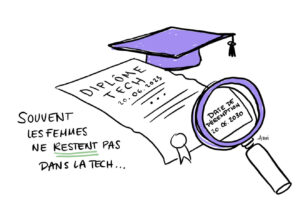 DIPLÔME
TECH
20.06.2023
DATE DE
PÉREMPTION
20.06.2030
SOUVENT
LES FEMMES
NE RESTENT PAS
DANS LA TECH...